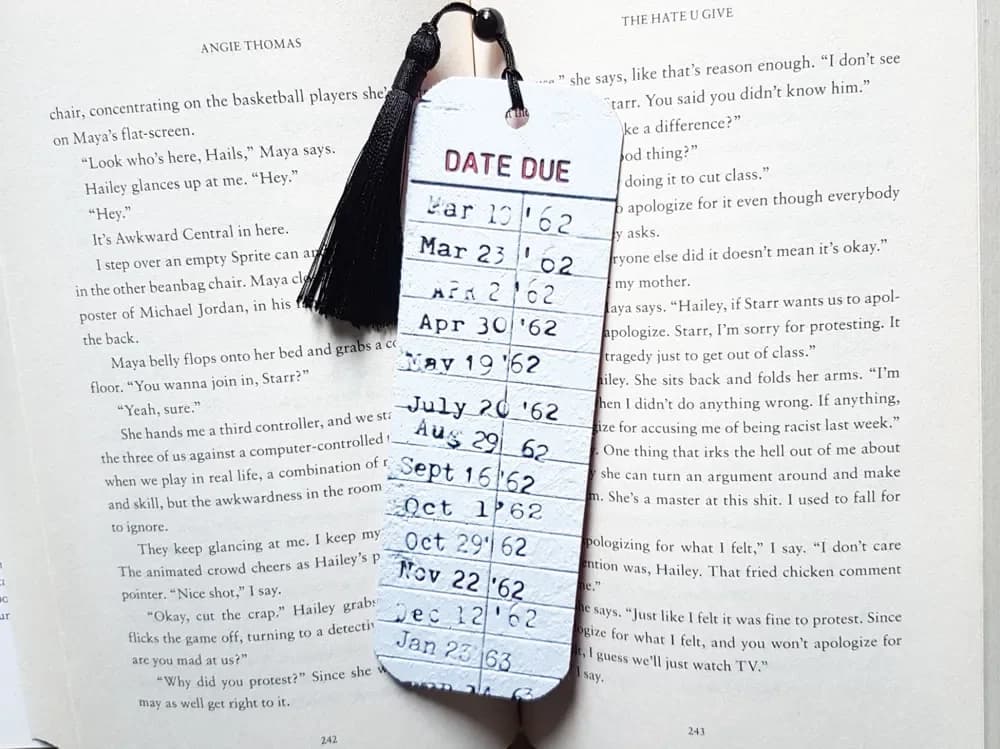 ANGIE THOMAS
chair, concentrating on the basketball players she's
on Maya's flat-screen.
"Look who's here, Hails," Maya says.
Hailey glances up at me. "Hey."
"Hey."
It's Awkward Central in here.
I step over an empty Sprite can
in the other beanbag chair. Maya
poster of Michael Jordan, in his
the back.
Maya belly flops onto her bed and grabs a
floor. "You wanna join in, Starr?"
"Yeah, sure."
She hands me a third controller, and we
the three of us against a computer-controlled
when we play in real life, a combination of
and skill, but the awkwardness in the room
to ignore.
They keep glancing at me. I keep my
The animated crowd cheers as Hailey's
pointer. "Nice shot," I say.
"Okay, cut the crap." Hailey
flicks the game off, turning to a
are you mad at us?"
"Why did you protest?" Since she
may as well get right to it.
242
DATE DUE
Mar 10 '62
Mar 23 '62
Apr 2 '62
Apr 30 '62
May 19 '62
July 20 '62
Aug 29 62
Sept 16 '62
Oct 1 '62
Oct 29 '62
Nov 22 '62
Dec 12 '62
Jan 23 63
63
THE HATE U GIVE
she says, like that's reason enough. "I don't see
Starr. You said you didn't know him."
a difference?"
thing?"
doing it to cut class."
apologize for it even though everybody
asks.
else did it doesn't mean it's okay."
my mother.
says. "Hailey, if Starr wants us to apol-
apologize. Starr, I'm sorry for protesting. It
tragedy just to get out of class."
She sits back and folds her arms. "I'm
when I didn't do anything wrong. If anything,
for accusing me of being racist last week."
One thing that irks the hell out of me about
she can turn an argument around and make
She's a master at this shit. I used to fall for
apologizing for what I felt," I say. "I don't care
was, Hailey. That fried chicken comment
says. "Just like I felt it was fine to protest. Since
for what I felt, and you won't apologize for
I guess we'll just watch TV."
I say.
243